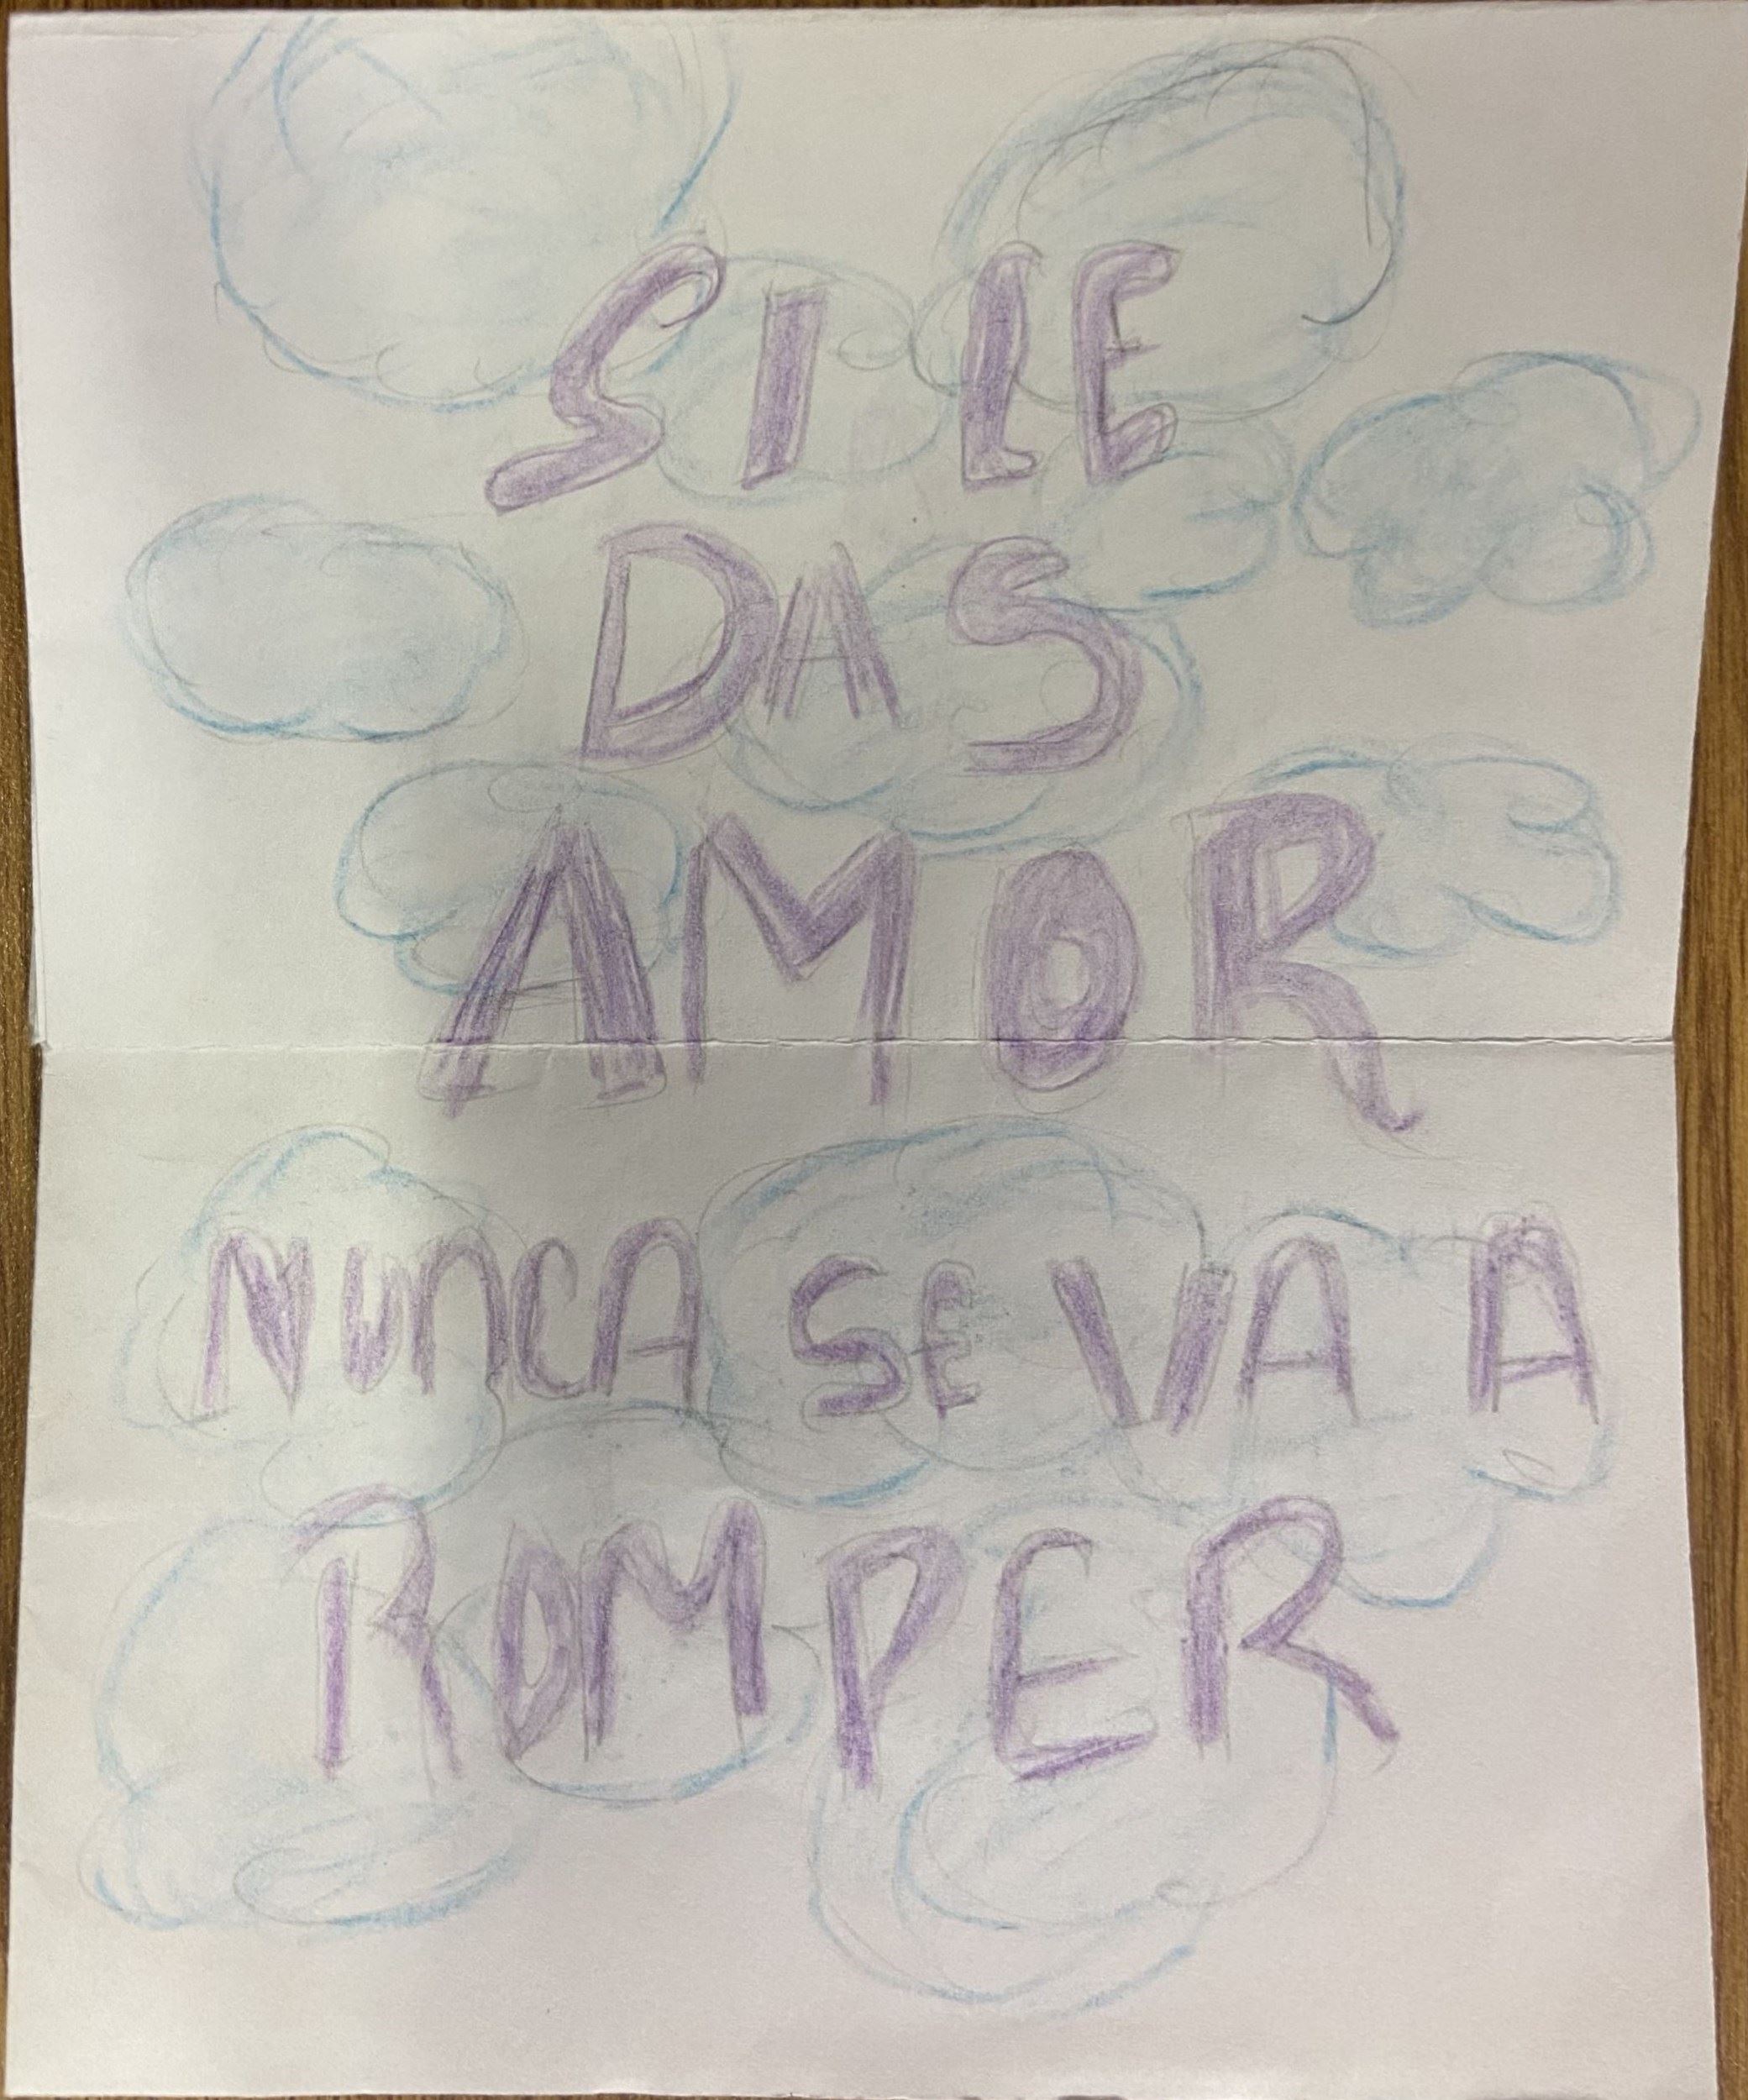 SI LE
DAS
AMOR
NUNCA SE VA A
ROMPER